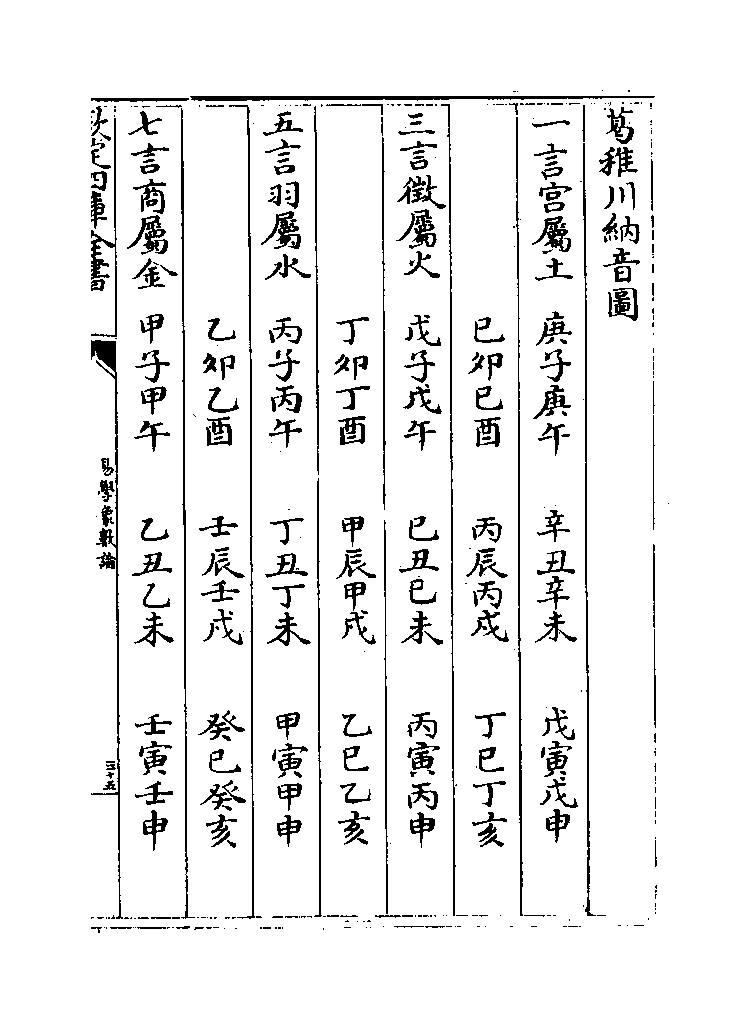 葛稚川納音圖
一言宫屬土　庚子庚午　辛丑辛未　戊寅戊申
己卯己酉　丙辰丙戌　丁巳丁亥
三言徵屬火　戊子戊午　己丑己未　丙寅丙申
丁卯丁酉　甲辰甲戌　乙巳乙亥
五言羽屬水　丙子丙午　丁丑丁未　甲寅甲申
乙卯乙酉　壬辰壬戌　癸巳癸亥
七言商屬金　甲子甲午　乙丑乙未　壬寅壬申
欽定四庫全書
易學象數論
三十五